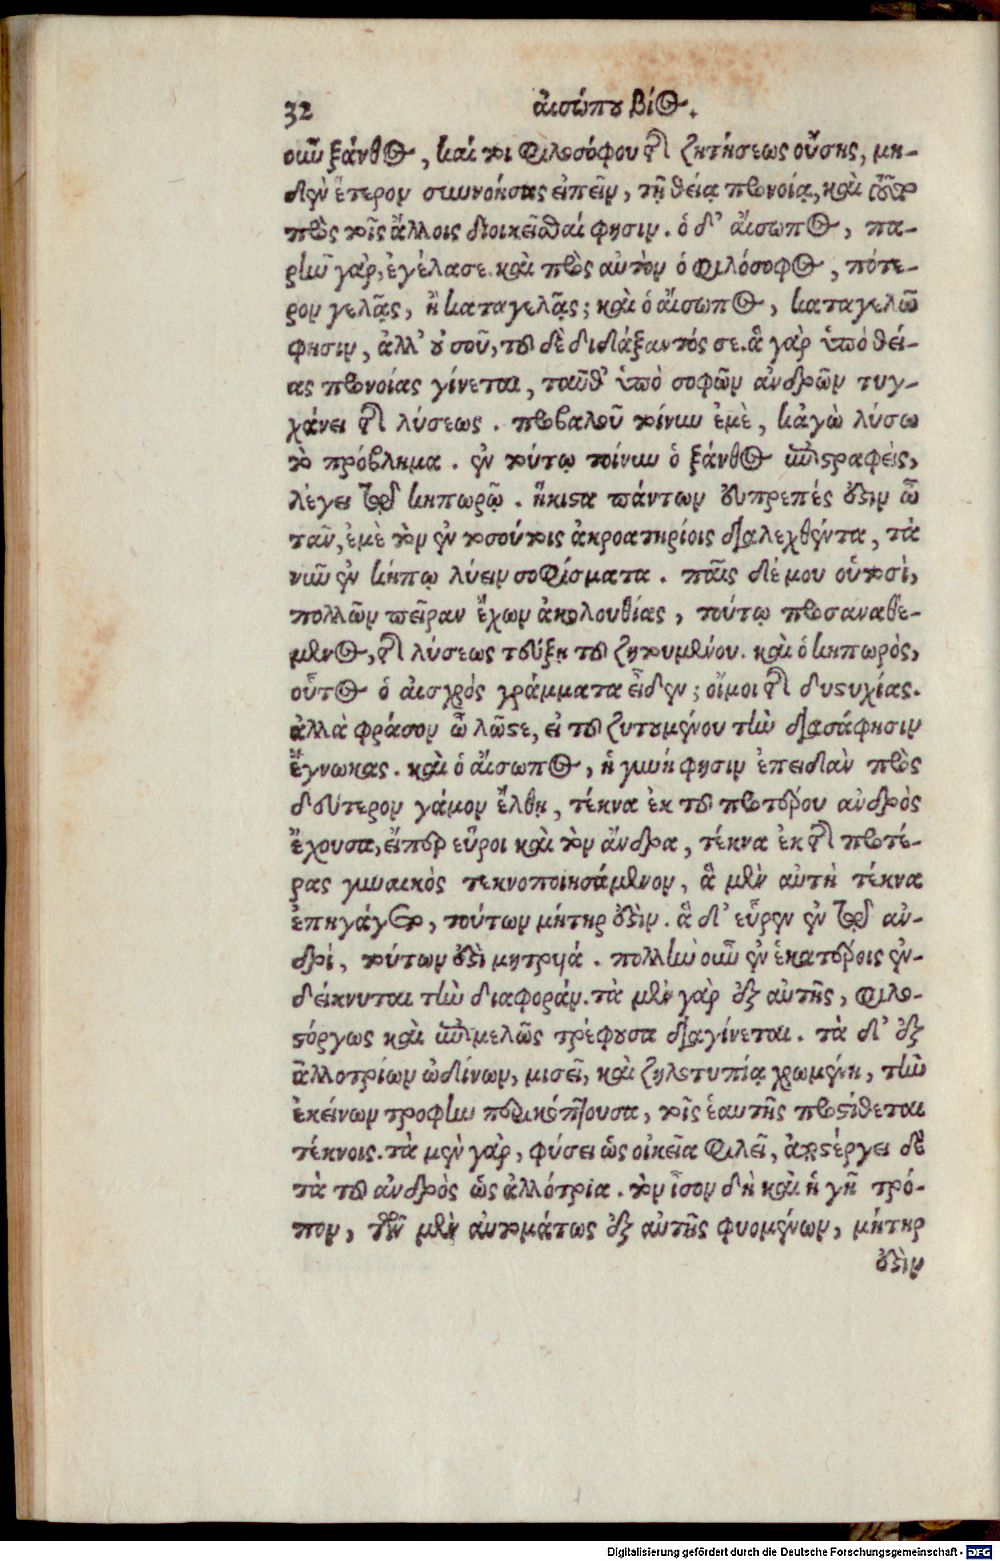 32 αἰσώπου βίος.
οὖν ξάνθος, καί τοι φιλοσόφου τῆς ζητήσεως οὔσης, μη-
δὲν ἕτερον συννοήσας εἰπεῖν, τῇ θείᾳ προνοίᾳ, καὶ
πρὸς τοῖς ἄλλοις διοικεῖσθαί φησιν. ὁ δ' αἴσωπος, πα-
ρῆν γὰρ, ἐγέλασε. καὶ πρὸς αὐτὸν ὁ φιλόσοφος, πότε-
ρον γελᾷς, ἢ καταγελᾷς; καὶ ὁ αἴσωπος, καταγελῶ
φησιν, ἀλλ' οὐ σοῦ, τοῦ δὲ διδάξαντός σε. ἃ γὰρ ὑπὸ θεί-
ας προνοίας γίνεται, ταῦθ' ὑπὸ σοφῶν ἀνδρῶν τυγ-
χάνει τῆς λύσεως. προβαλοῦ τοίνυν ἐμὲ, κἀγὼ λύσω
τὸ πρόβλημα. ἐν τούτῳ τοίνυν ὁ ξάνθος ἐπιστραφεὶς,
λέγει τῷ κηπωρῷ. ἥκιστα πάντων εὐπρεπές ἐστιν ὦ
ταῦν, ἐμὲ τὸν ἐν τοσούτοις ἀκροατηρίοις διαλεχθέντα, τὰ
νῦν ἐν κήπῳ λύειν σοφίσματα. παῖς δέ μου οὑτοσὶ,
πολλῶν πεῖραν ἔχων ἀκολουθίας, τούτῳ προσαναθέ-
μενος, τῆς λύσεως τεύξῃ τοῦ ζητουμένου. καὶ ὁ κηπωρὸς,
οὗτος ὁ αἰσχρὸς γράμματα εἶδεν; οἴμοι τῆς δυστυχίας.
ἀλλὰ φράσον ὦ λῷστε, εἰ τοῦ ζητουμένου τὴν διασάφησιν
ἔγνωκας. καὶ ὁ αἴσωπος, ἡ γυνή φησιν ἐπειδὰν πρὸς
δεύτερον γάμον ἔλθῃ, τέκνα ἐκ τοῦ προτέρου ἀνδρὸς
ἔχουσα, εἴπερ εὕροι καὶ τὸν ἄνδρα, τέκνα ἐκ τῆς προτέ-
ρας γυναικὸς τεκνοποιησάμενον, ἃ μὲν αὐτὴ τέκνα
ἐπηγάγετο, τούτων μήτηρ ἐστὶν. ἃ δ' εὗρεν ἐν τῷ ἀν-
δρὶ, τούτων ἐστὶ μητρυιά. πολλὴν οὖν ἐν ἑκατέροις ἐν-
δείκνυται τὴν διαφοράν. τὰ μὲν γὰρ ἐξ αὐτῆς, φιλο-
στόργως καὶ ἐπιμελῶς τρέφουσα διαγίνεται. τὰ δ' ἐξ
ἀλλοτρίων ὠδίνων, μισεῖ, καὶ ζηλοτυπίᾳ χρωμένη, τὴν
ἐκείνων τροφὴν περικόπτουσα, τοῖς ἑαυτῆς προστίθεται
τέκνοις. τὰ μὲν γὰρ, φύσει ὡς οἰκεῖα φιλεῖ, ἀποστέργει δὲ
τὰ τοῦ ἀνδρὸς ὡς ἀλλότρια. τὸν ἴσον δὴ καὶ ἡ γῆ τρό-
πον, τῶν μὲν αὐτομάτως ἐξ αὐτῆς φυομένων, μήτηρ
ἐστὶν
Digitalisierung gefördert durch die Deutsche Forschungsgemeinschaft - DFG